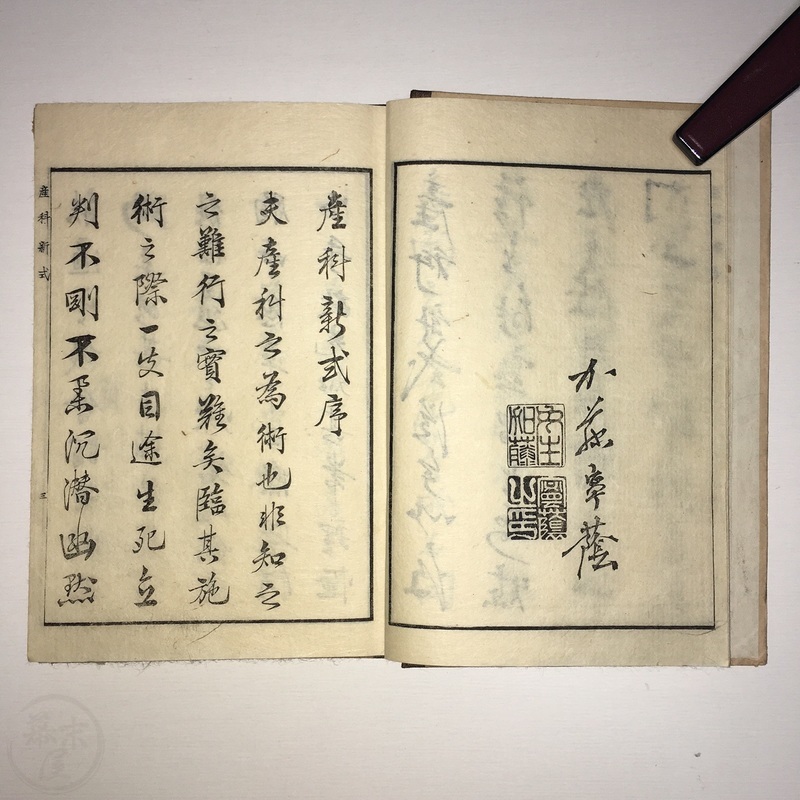 加藤蔭
產科新式序
夫產科之為術也非知之
之難行之實難矣臨其施
術之際一目途生死立
判不剛不柔沉潛幽默
産科新式
三